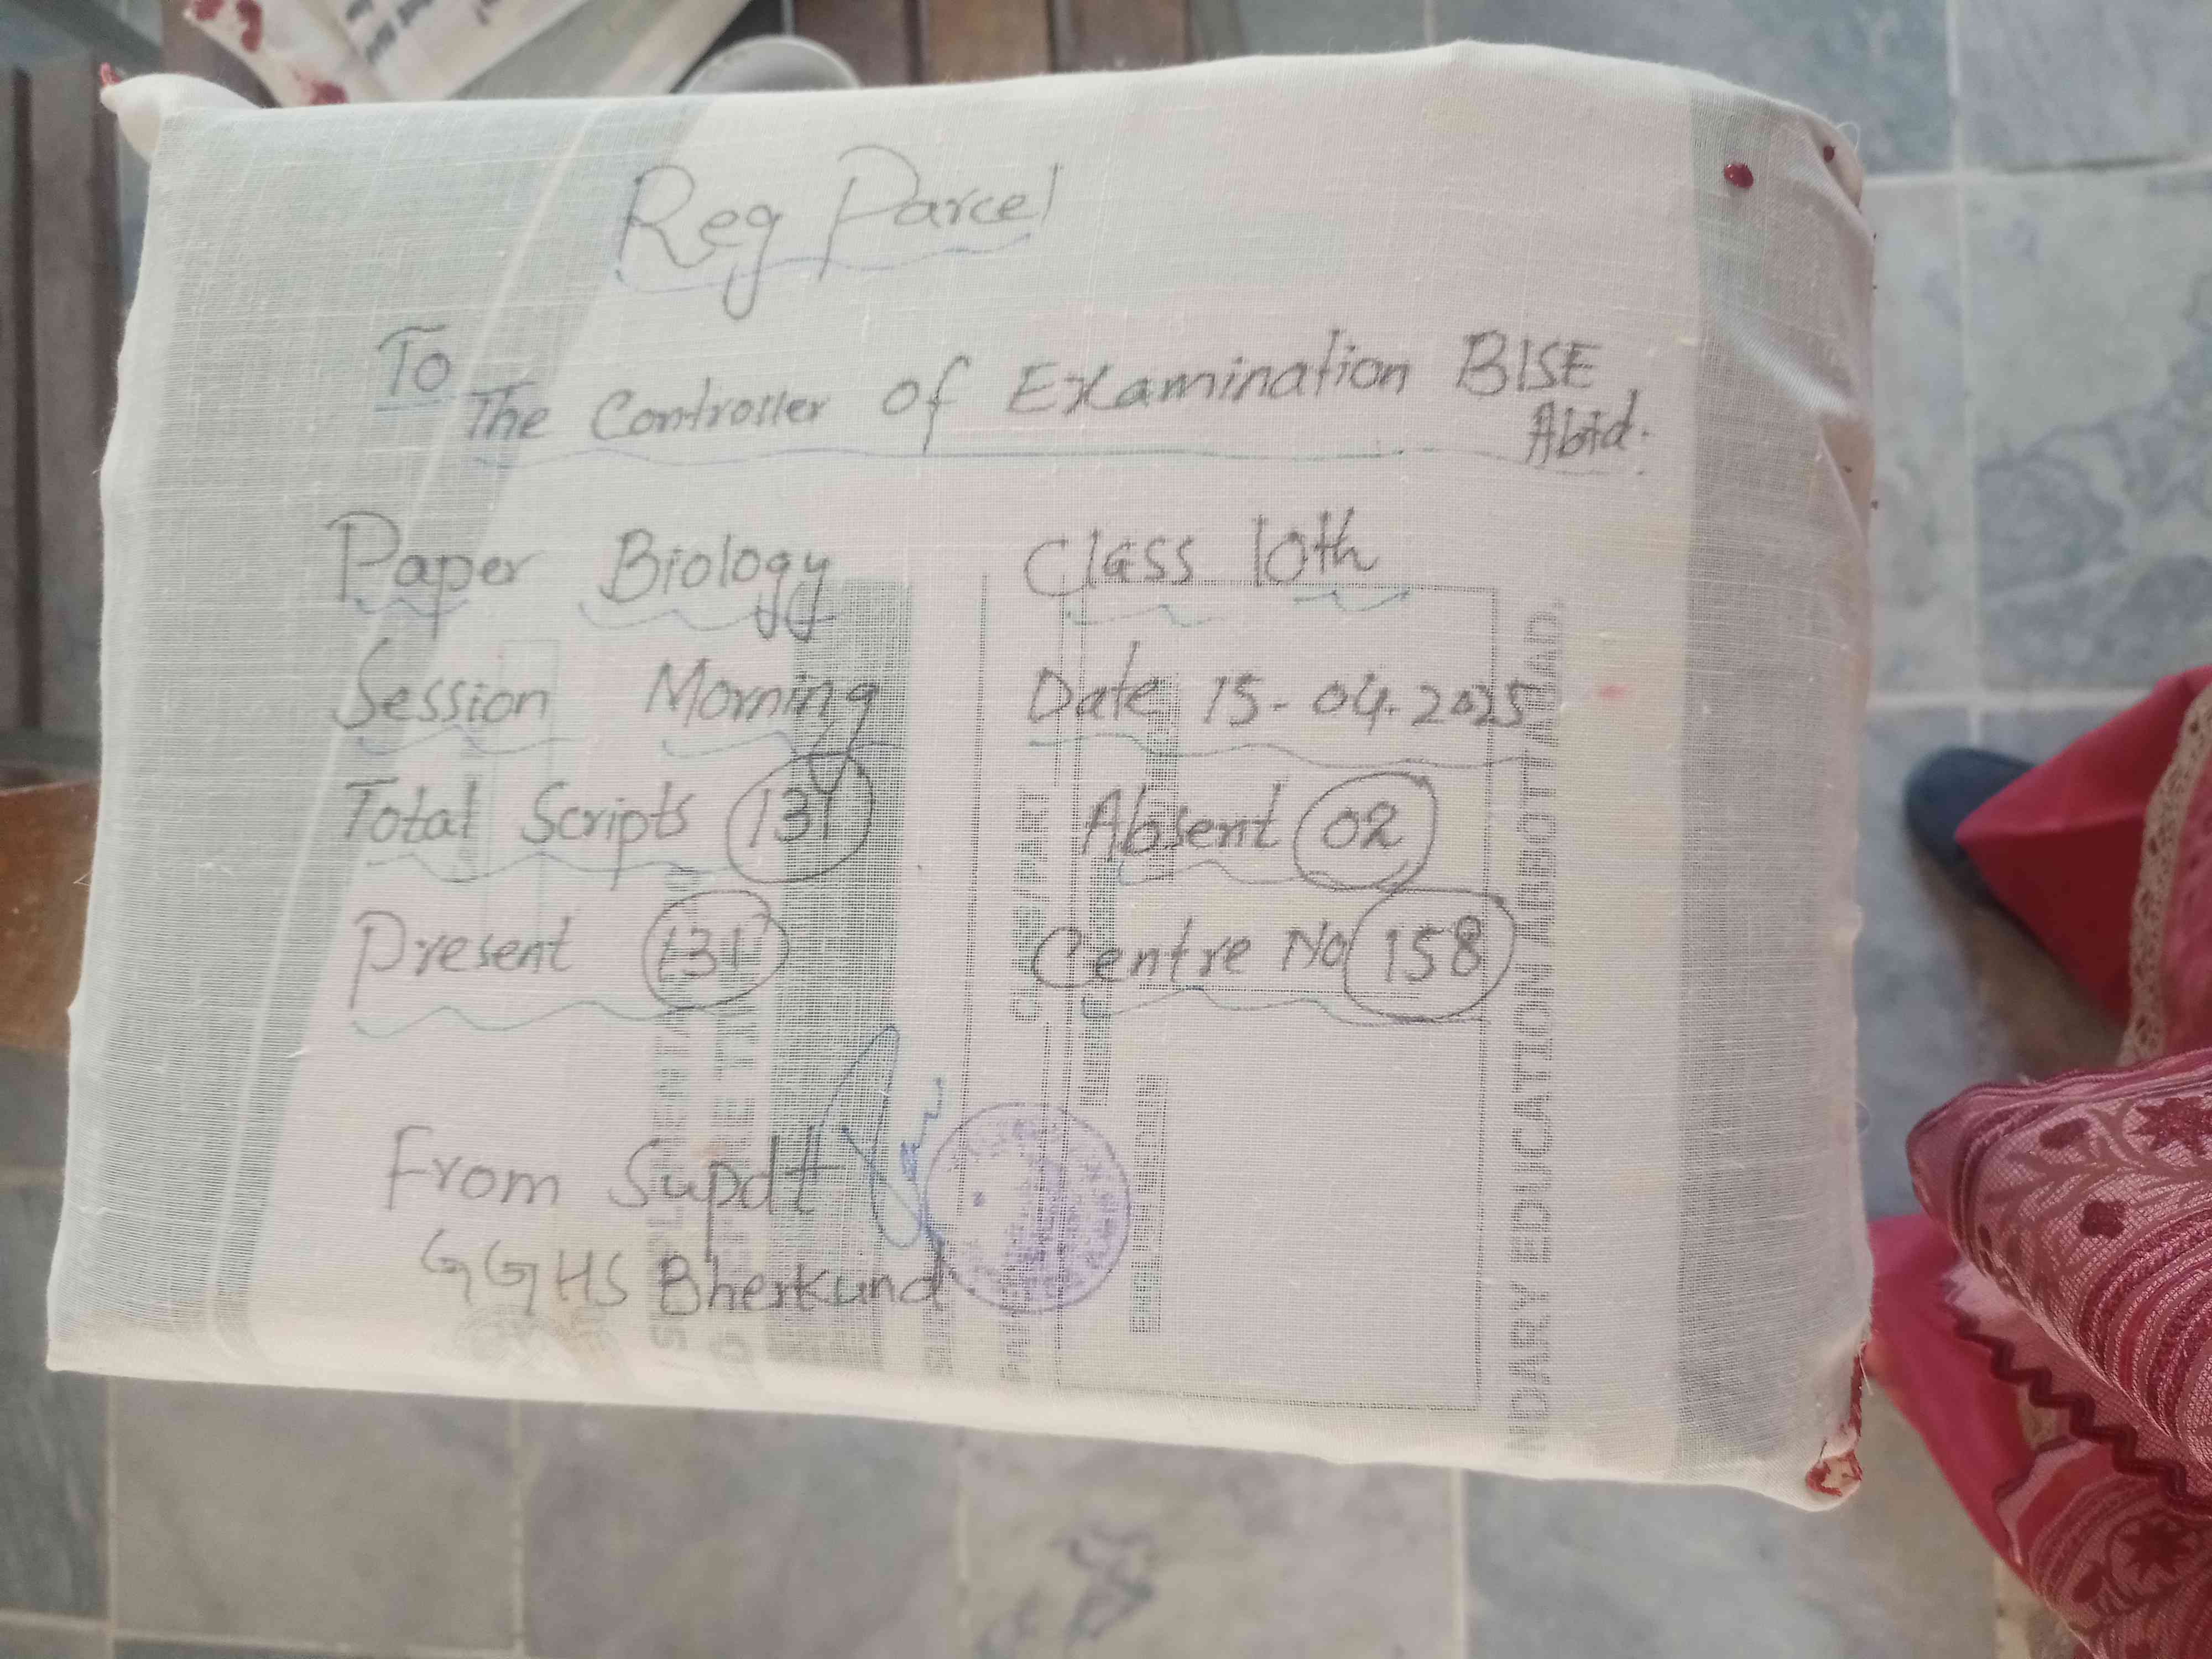 Reg Parcel
To
The Controller of Examination BISE
Abtd.
Paper Biology Class 10th
Session Morning Date 15-04-2025
Total Scripts 131 Absent 02
Present 131 Centre No 158
From Supdt
GGHS Bherkund
DARY EDUCATION ABBOTTABAD.